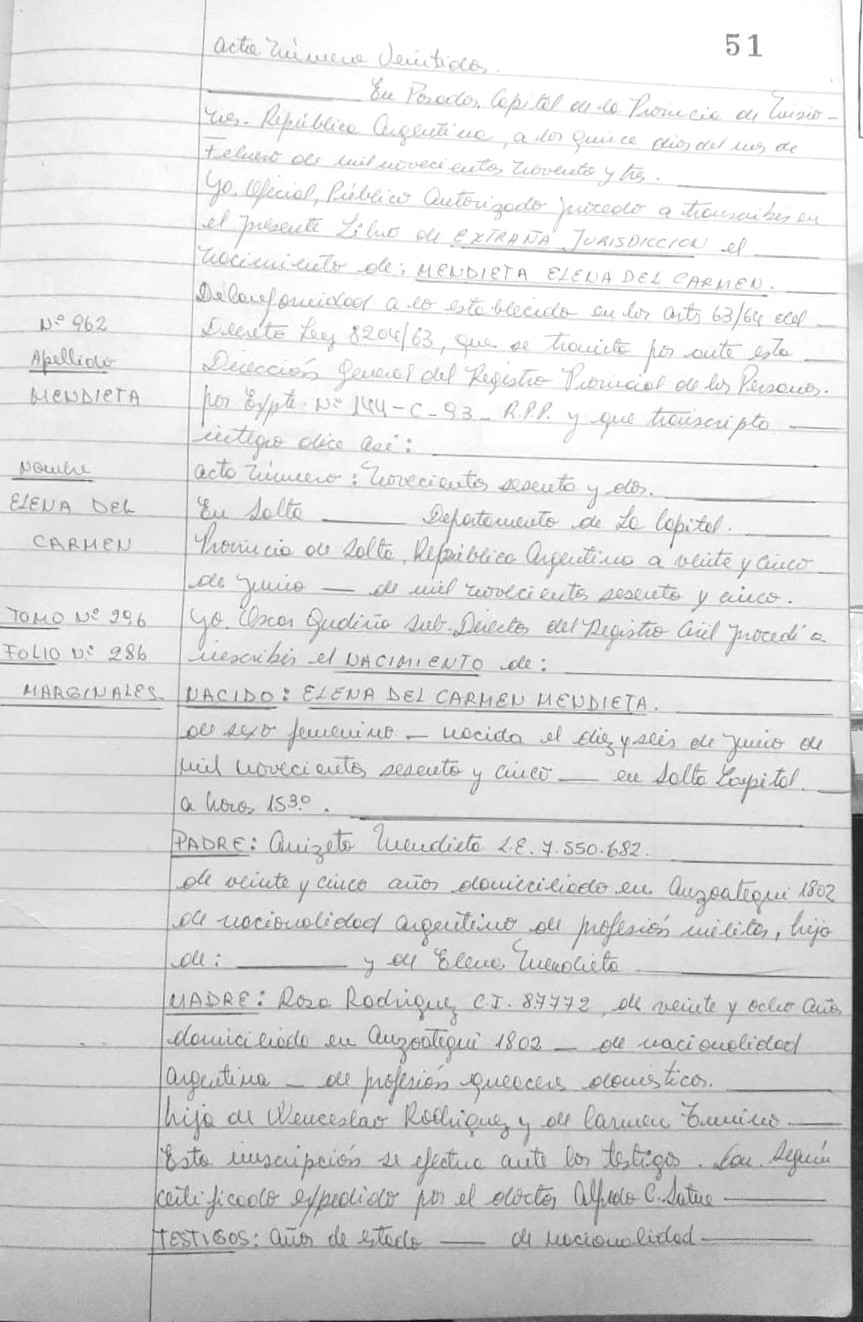 51
Acta Número Veintidos.
En Posadas, Capital de la Provincia de Misio-
nes. República Argentina, a los quince dias del mes de
Febrero de mil novecientos noventa y tres.
Yo. Oficial, Público Autorizado procedo a transcribir en
el presente Libro de EXTRAÑA JURISDICCION el
nacimiento de: MENDIETA ELENA DEL CARMEN.
De conformidad a lo establecido en los arts 63/64 del
Nº 962
Decreto Ley 8204/63, que se tramita por ante esta
Apellido
Dirección General del Registro Provincial de las Personas.
MENDIETA
por Expte. Nº 144-C-93- R.P.P. y que transcripto
integro dice así:
Nombre
acta Número: Novecientos sesenta y dos.
ELENA DEL
En Salta Departamento de La Capital.
CARMEN
Provincia de Salta, República Argentina a veinte y cinco
de Junio — de mil novecientos sesenta y cinco.
TOMO Nº 296
Yo. Oscar Gudiño Sub-Director del Registro Civil procedí a
FOLIO Nº 286
inscribir el NACIMIENTO de:
MARGINALES
NACIDO: ELENA DEL CARMEN MENDIETA.
de sexo femenino — nacida el diez y seis de Junio de
mil novecientos sesenta y cinco — en Salta Capital.
a horas 153º.
PADRE: Anizeto Mendieta L.E. 7.550.682.
de veinte y cinco años domiciliado en Anzoategui 1802
de nacionalidad argentino de profesión militar, hijo
de: y de Elena Mendieta
MADRE: Rosa Rodriguez C.I. 87772, de veinte y ocho años
domiciliada en Anzoategui 1802 — de nacionalidad
argentina — de profesión quehaceres domésticos.
hija de Wenceslao Rodriguez y de Carmen
Esta inscripción se efectua ante los testigos. Según
certificado expedido por el doctor Alfredo C.
TESTIGOS: años de estado — de nacionalidad